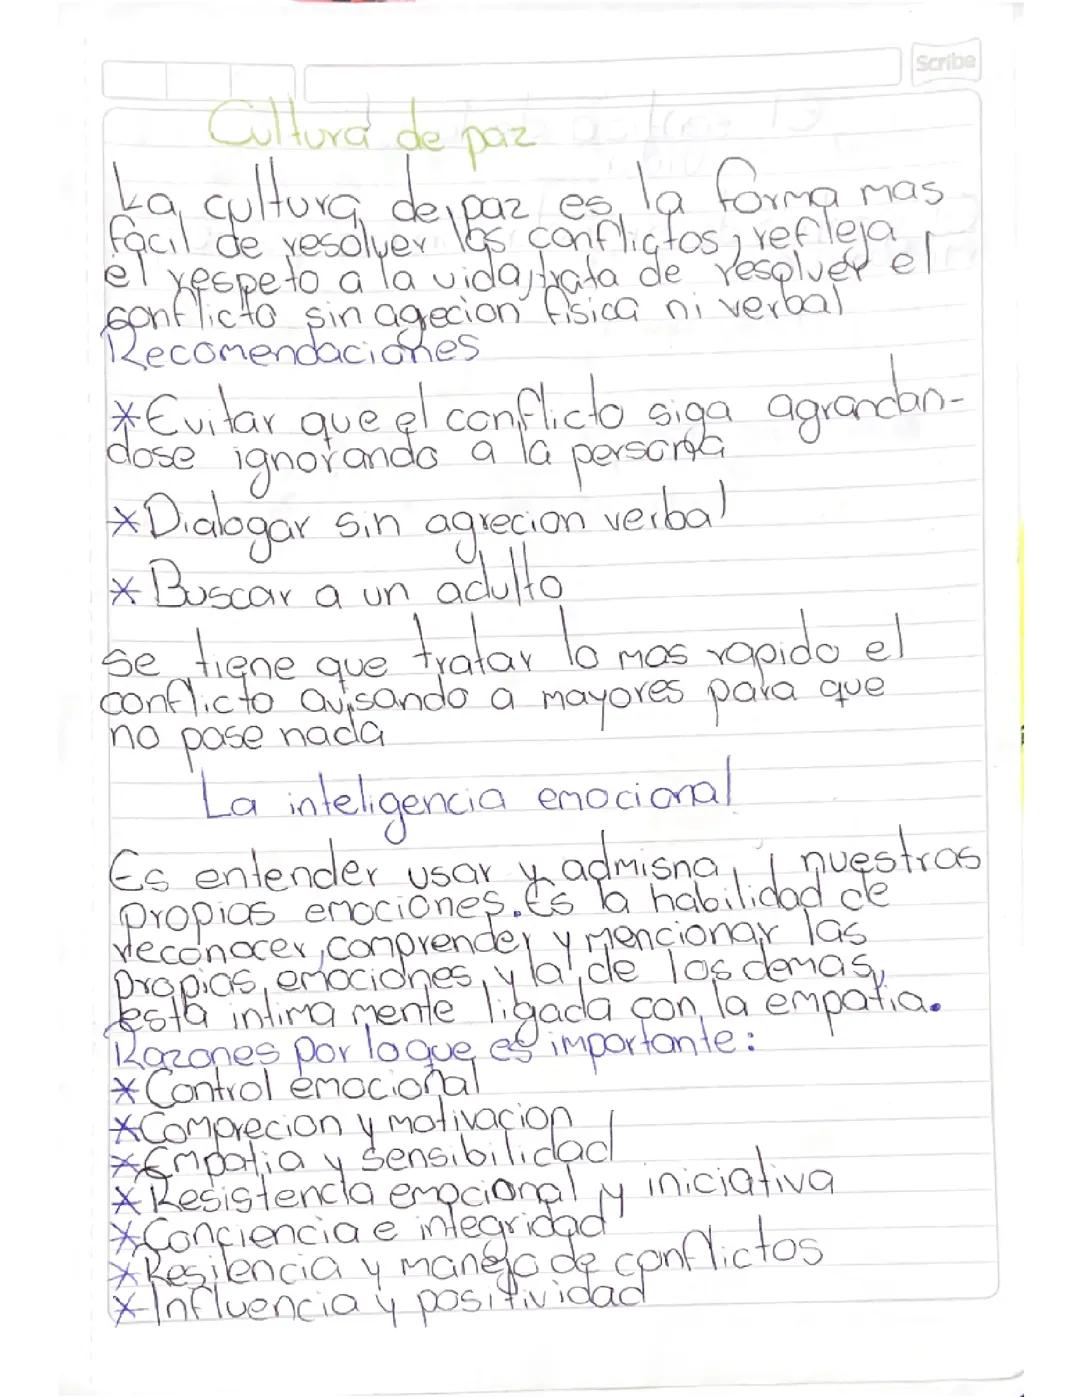 Scribe
Cultura de paz
La cultura de paz es la forma mas
fácil de resolver los conflictos, refleja
el respeto a la vida, trata de resolver el
conflicto sin agecion física ni verbal
Recomendaciones
*Evitar que el conflicto siga agrandan-
dose ignorando a la persona
*Dialogar sin agrecion verbal
*Buscar a un adulto
se tiene que tratar lo mas rapido el
conflicto avisando a mayores para que
no pase nada
La inteligencia emocional
Es entender usar y admisna nuestras
propias emociones. Es la habilidad de
reconocer, comprender y mencionar las
propias emociones y la de los demas,
esta intima mente ligada con la empatia.
Razones por lo que es importante:
*Control emocional
*Comprecion y motivacion
*Empatia y sensibilidad
*Resistencia emocional y iniciativa
*Conciencia e integridad
*Resilencia y manejo de conflictos
*Influencia y positividad